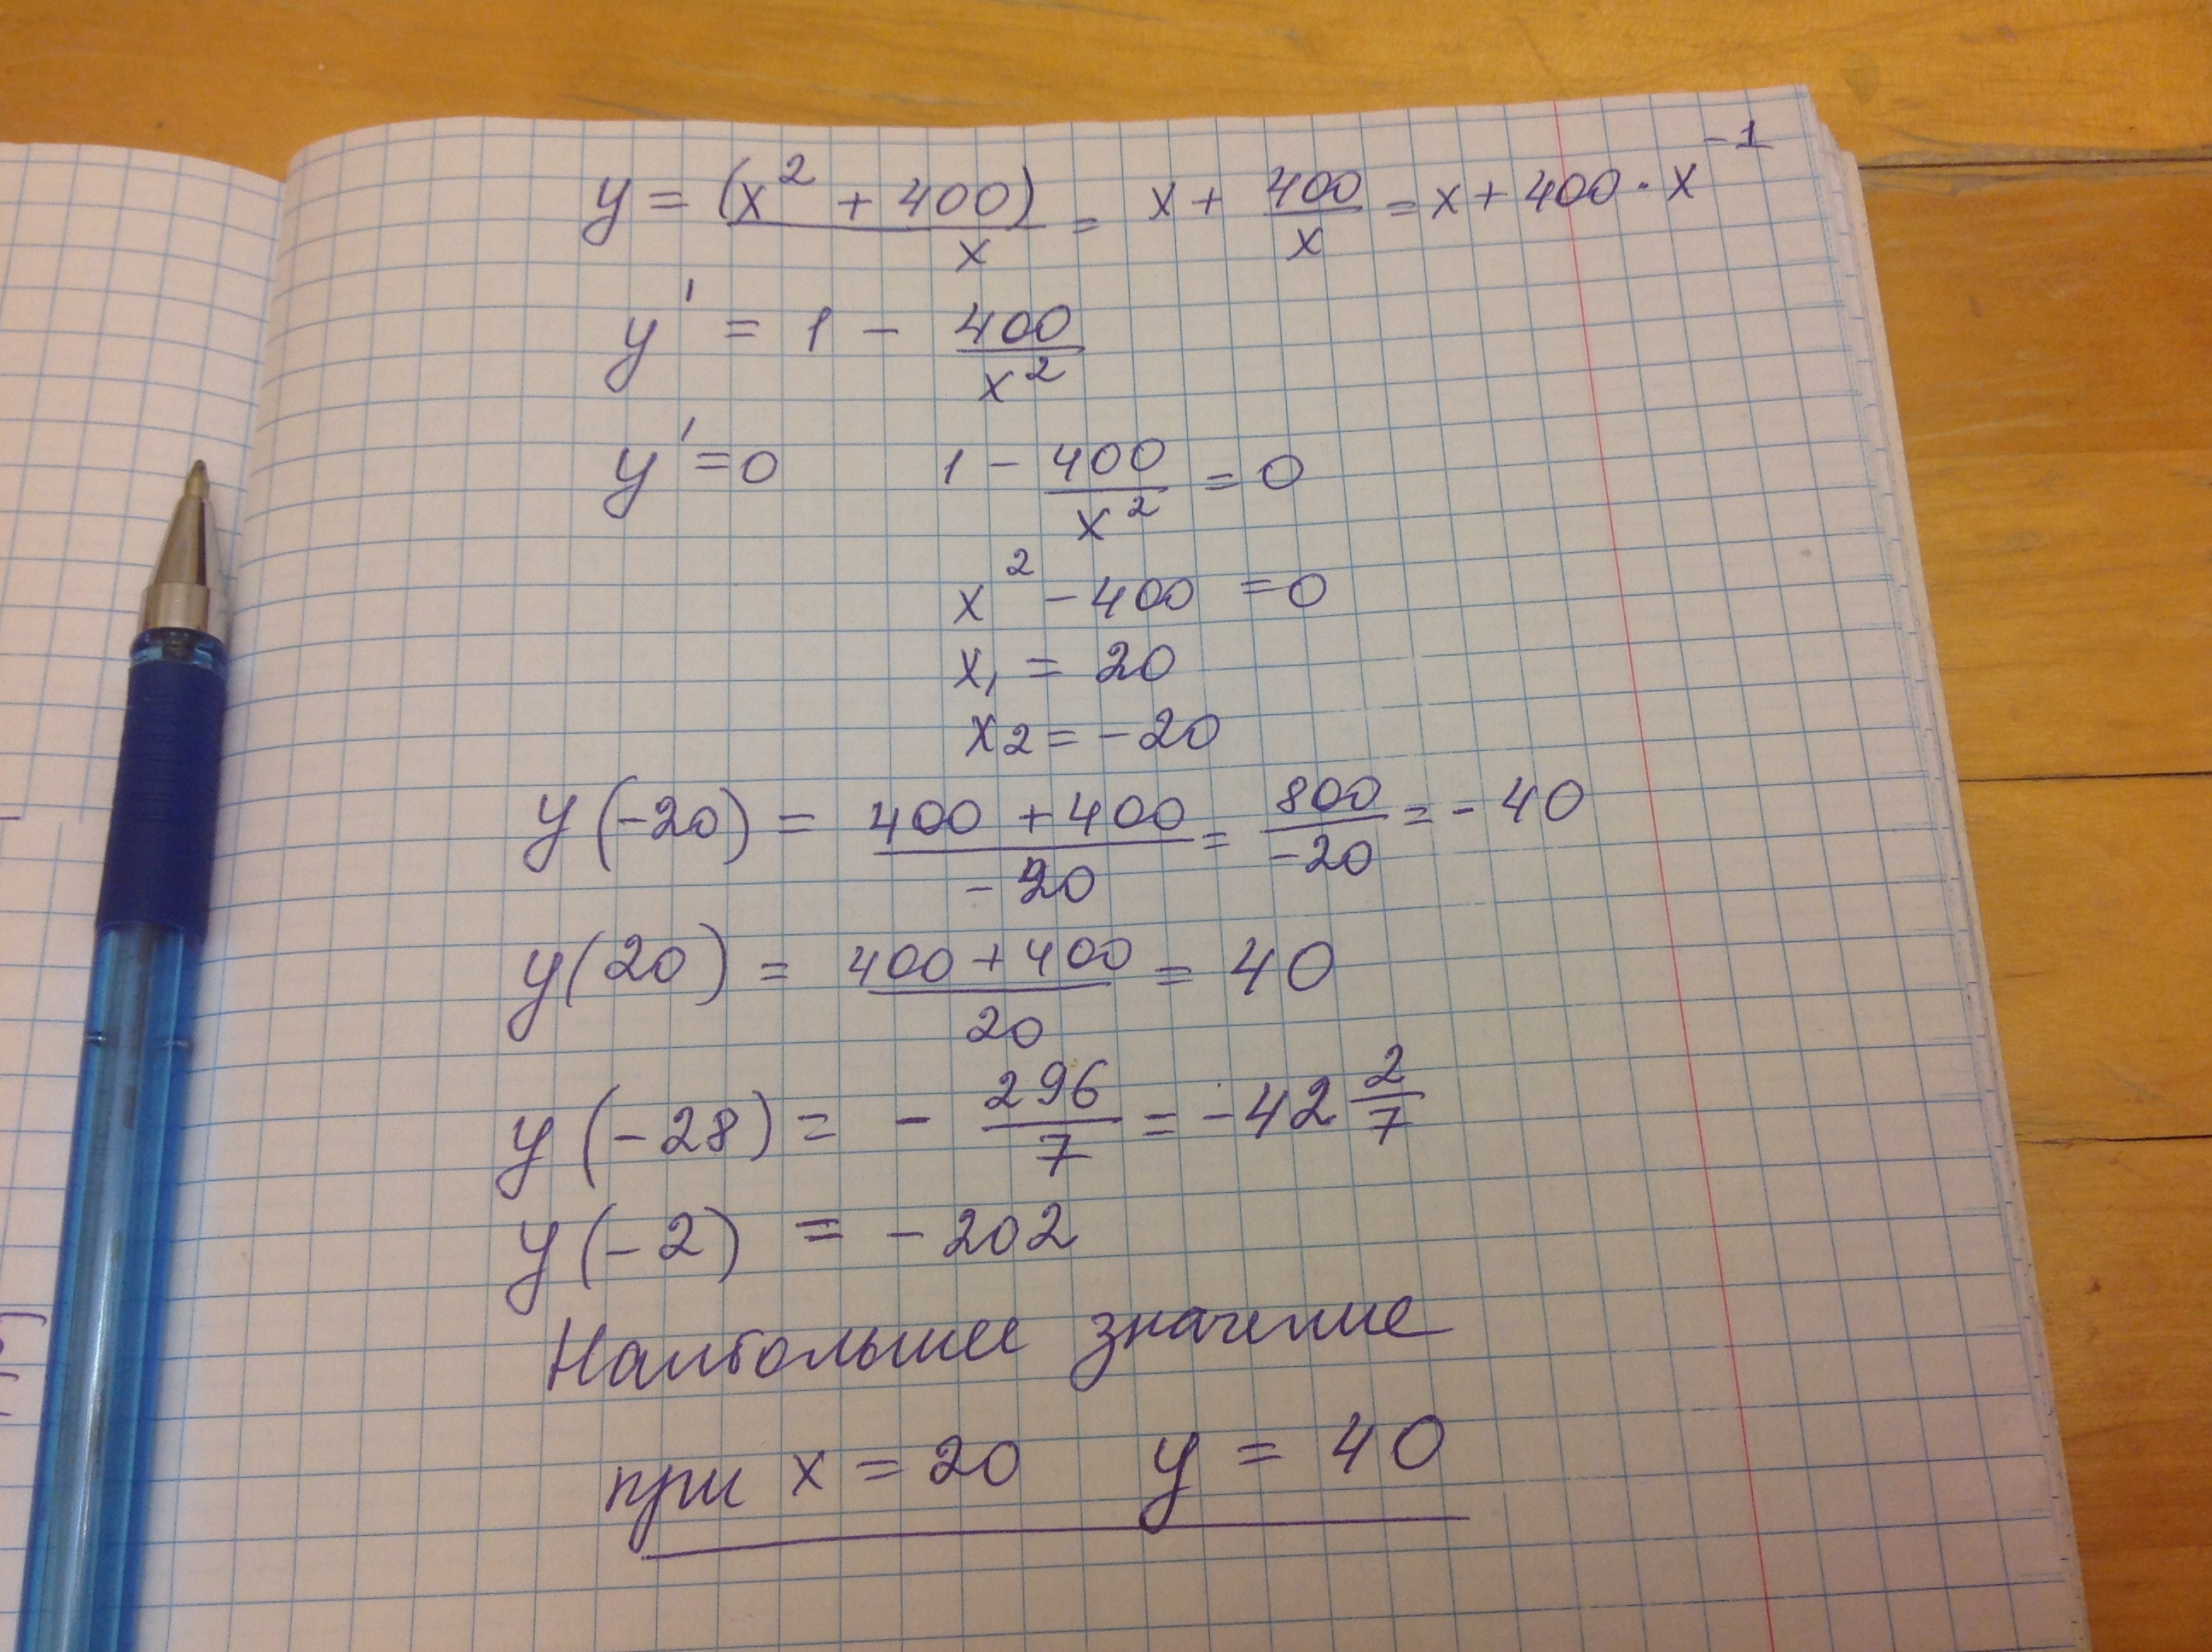 y = (x² + 400)/x = x + 400/x = x + 400 · x⁻¹
y' = 1 - 400/x²
y' = 0 1 - 400/x² = 0
x² - 400 = 0
x₁ = 20
x₂ = -20
y(-20) = (400 + 400)/(-20) = 800/(-20) = -40
y(20) = (400 + 400)/20 = 40
y(-28) = - 296/7 = -42 2/7
y(-2) = -202
Наибольшее значение
при x = 20 y = 40